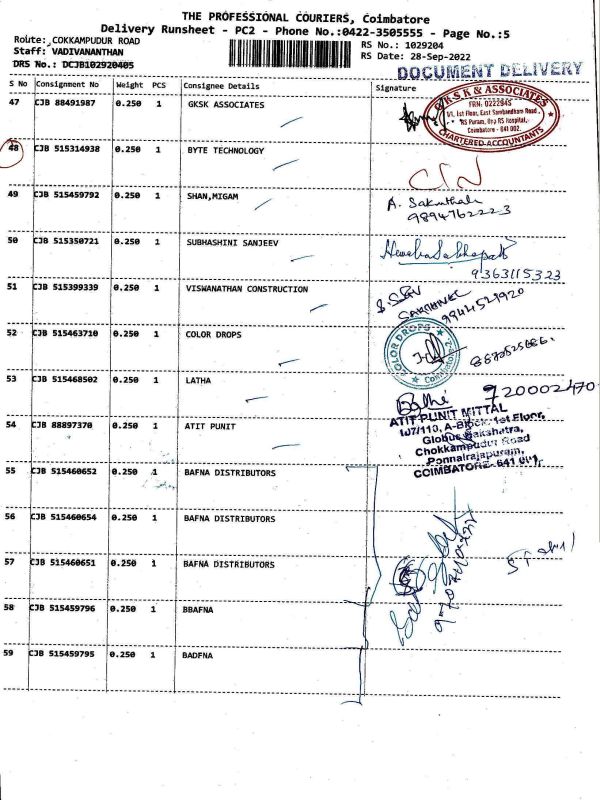 THE PROFESSIONAL COURIERS, Coimbatore
Delivery Runsheet - PC2 - Phone No.:0422-3505555 - Page No.:5
Route: COKKAMPUDUR ROAD RS No.: 1029204
Staff: VADIVANANTHAN RS Date: 28-Sep-2022
DRS No.: DCJB102920405 DOCUMENT DELIVERY
S No Consignment No Weight PCS Consignee Details Signature
47 CJB 88491987 0.250 1 GKSK ASSOCIATES
G K S K & ASSOCIATES
FRN: 022294S
1/1, 1st Floor, East Sambandham Road,
RS Puram, Opp RS Hospital,
Coimbatore - 641 002.
CHARTERED ACCOUNTANTS
48 CJB 515314938 0.250 1 BYTE TECHNOLOGY
49 CJB 515459792 0.250 1 SHAN,MIGAM A. Sakunthala
9894762223
50 CJB 515350721 0.250 1 SUBHASHINI SANJEEV
9363115323
51 CJB 515399339 0.250 1 VISWANATHAN CONSTRUCTION
9944529920
52 CJB 515463710 0.250 1 COLOR DROPS COLOR DROPS
53 CJB 515468502 0.250 1 LATHA
720002470
54 CJB 88897370 0.250 1 ATIT PUNIT
ATIT PUNIT MITTAL
107/110, A-Block, 1st Floor,
Globus Nakshatra,
Chokkampudur Road
Ponnairajapuram,
COIMBATORE - 641 001.
55 CJB 515460652 0.250 1 BAFNA DISTRIBUTORS
56 CJB 515460654 0.250 1 BAFNA DISTRIBUTORS
57 CJB 515460651 0.250 1 BAFNA DISTRIBUTORS
58 CJB 515459796 0.250 1 BBAFNA
59 CJB 515459795 0.250 1 BADFNA